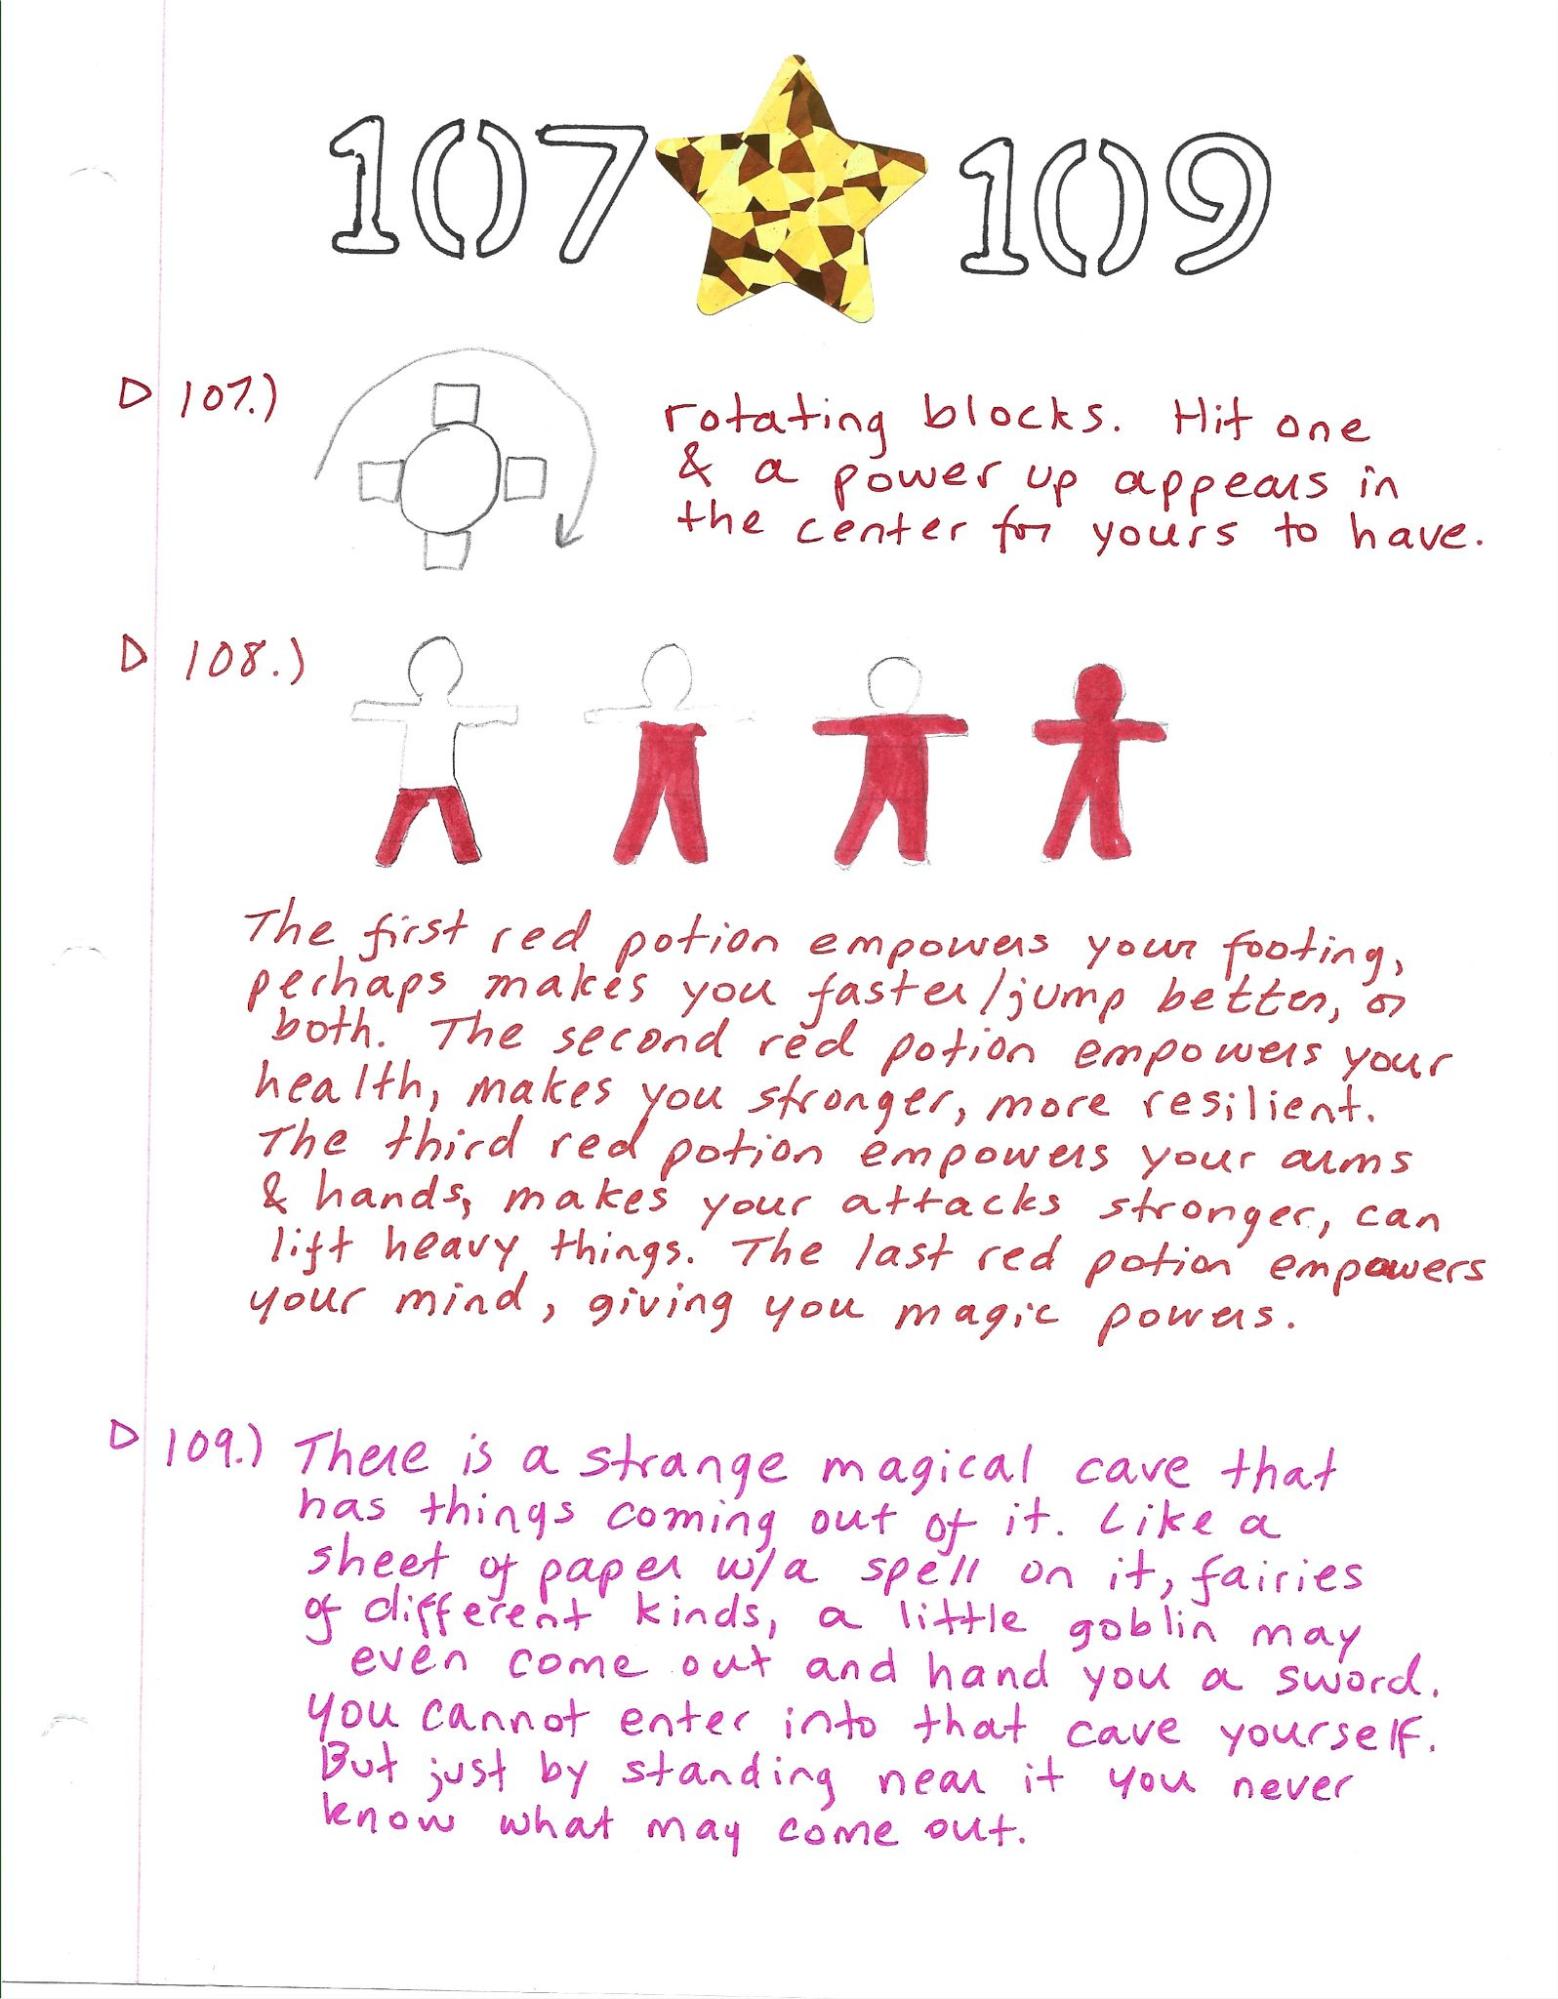 107 109
▷ 107.)
rotating blocks. Hit one
& a power up appears in
the center for yours to have.
▷ 108.)
The first red potion empowers your footing,
perhaps makes you faster/jump better, or
both. The second red potion empowers your
health, makes you stronger, more resilient.
The third red potion empowers your arms
& hands, makes your attacks stronger, can
lift heavy things. The last red potion empowers
your mind, giving you magic powers.
▷ 109.) There is a strange magical cave that
has things coming out of it. Like a
sheet of paper w/a spell on it, fairies
of different kinds, a little goblin may
even come out and hand you a sword.
you cannot enter into that cave yourself.
But just by standing near it you never
know what may come out.